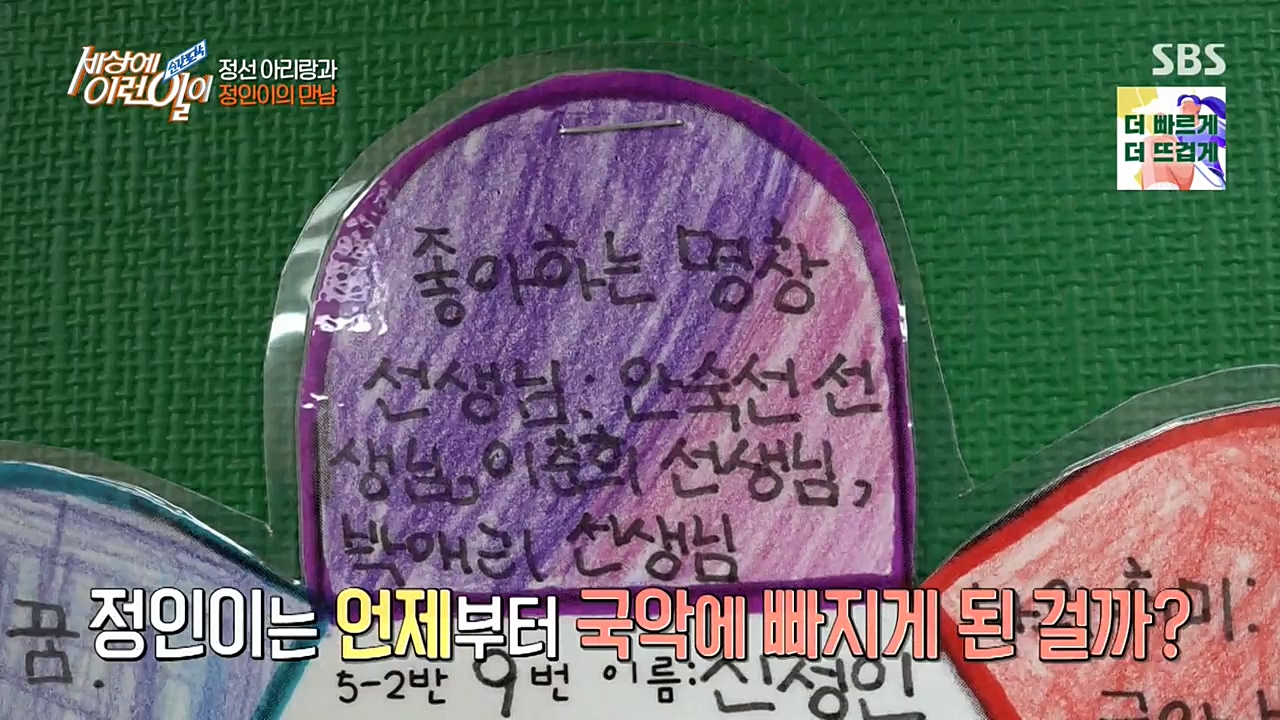 순간포착
세상에
이런일이
정선 아리랑과
정인이의 만남
SBS
더 빠르게
더 뜨겁게
좋아하는 명창
선생님: 안숙선 선
생님, 이춘희 선생님,
박애리 선생님
꿈.
미:
정인이는 언제부터 국악에 빠지게 된 걸까?
5-2반 9번 이름: 신정인